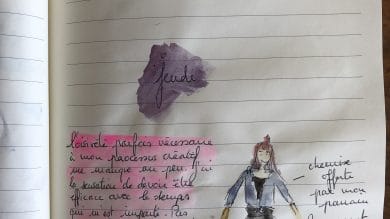 jeudi
L'oisiveté parfois nécessaire
à mon processus créatif
me manque un peu. J'ai
la sensation de devoir être
efficace avec le temps
qui m'est imparti. Pas
chemise
offerte
par mon
parrain